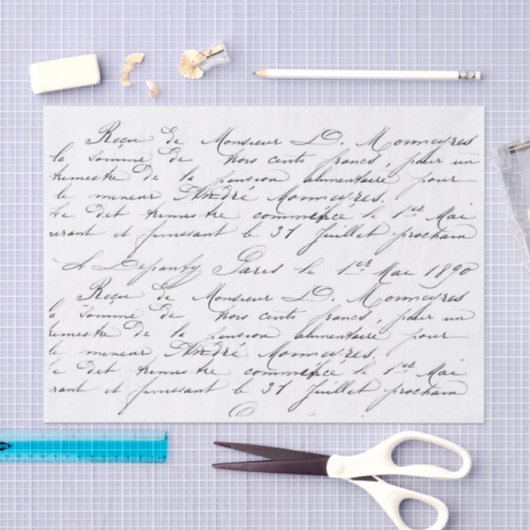 Reçu de Monsieur D. Monneyres
la somme de trois cents francs, pour un
trimestre de la pension alimentaire pour
le mineur André Monneyres.
Le dit trimestre commence le 1er Mai
urant et finissant le 31 Juillet prochain
Paris le 1er Mai 1890
Reçu de Monsieur D. Monneyres
a somme de trois cents francs, pour un
rimestre de la pension alimentaire pour
le mineur André Monneyres.
e dit trimestre commence le 1er Mai
rant et finissant le 31 Juillet prochain